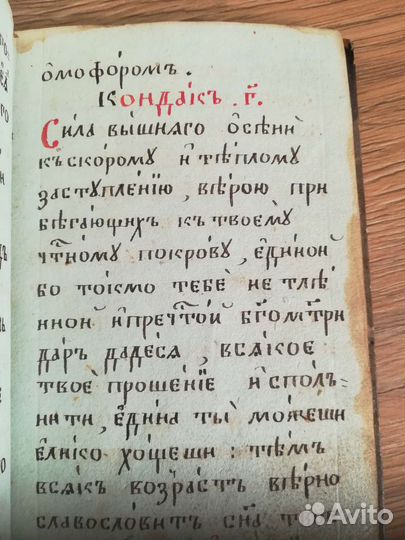 ѻ҆мофо́ромъ .
Конда́къ . г҃ .
Си́ла вы́шнѧго ѻ҆сѣни́
къ ско́рому и҆ те́плому
застꙋпле́нїю , вѣ́рою при
бѣга́ющихъ къ твоемꙋ̀
чтⷭ҇номꙋ покро́вꙋ , є҆ди́ной
бо то́кмо тебѣ̀ нетлѣ́
нной и҆ пречтⷭ҇ой бг҃ома́три
да́ръ даде́сѧ , всѧ́кое
твоѐ проше́нїе и҆спо́лъ-
нити , є҆ди́на ты̀ мо́жеши
є҆ли́ко хо́щеши : тѣ́мъ
всѧ́къ во́зрастъ вѣ́рно
славосло́витъ сн҃а
Avito